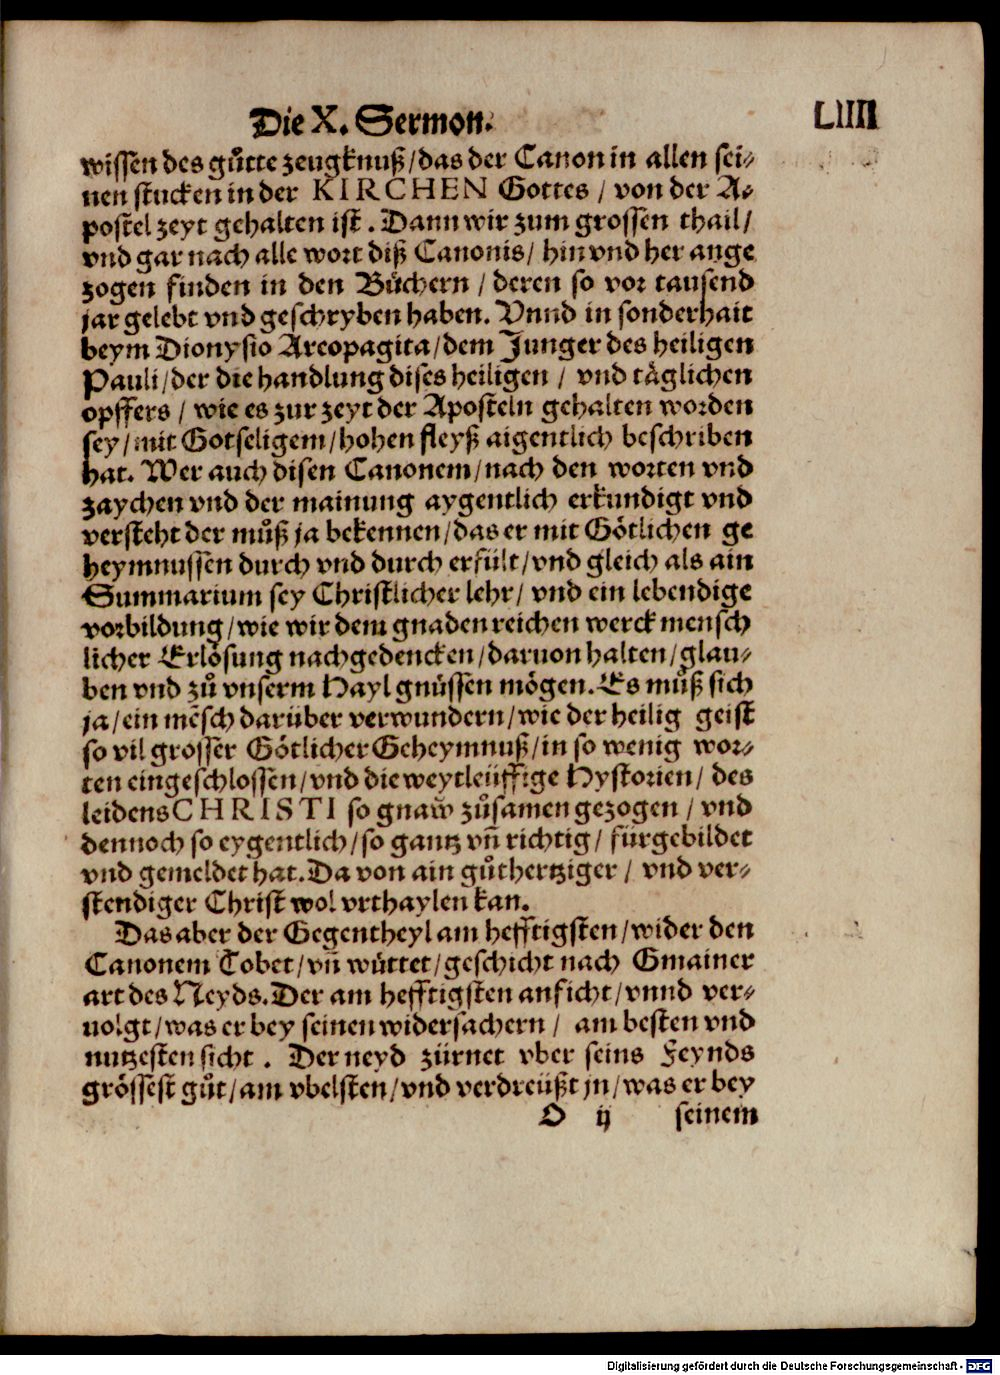 Die X. Sermon.
LIIII
wissen des gůtte zeugknuß/das der Canon in allen sei⸗
nen stucken in der KIRCHEN Gottes / von der A⸗
postel zeyt gehalten ist . Dann wir zum grossen thail/
vnd gar nach alle wort diß Canonis/ hin vnd her ange
zogen finden in den Bůchern / deren so vor tausend
jar gelebt vnd geschryben haben. Vnnd in sonderhait
beym Dionysio Areopagita/dem Junger des heiligen
Pauli/der die handlung dises heiligen / vnd täglichen
opffers / wie es zur zeyt der Aposteln gehalten worden
sey/mit Gotseligem/hohen fleyß aigentlich beschriben
hat. Wer auch disen Canonem/nach den worten vnd
zaychen vnd der mainung aygentlich erkundigt vnd
versteht der můß ja bekennen/das er mit Götlichen ge
heymnussen durch vnd durch erfült/vnd gleich als ain
Summarium sey Christlicher lehr/ vnd ein lebendige
vorbildung/wie wir dem gnadenreichen werck mensch
licher Erlösung nachgedencken/daruon halten/glau⸗
ben vnd zů vnserm Hayl gnüssen mögen. Es můß sich
ja/ein mẽsch darüber verwundern/wie der heilig geist
so vil grosser Götlicher Geheymnuß/in so wenig wor⸗
ten eingeschlossen/vnd die weytleüffige Hystorien/ des
leidens CHRISTI so gnaw̃ zůsamen gezogen / vnd
dennoch so eygentlich/so gantz vñ richtig/ fürgebildet
vnd gemeldet hat. Da von ain gůthertziger / vnd ver⸗
stendiger Christ wol vrthaylen kan.
Das aber der Gegentheyl am hefftigsten/wider den
Canonem Tobet/vñ wüttet/geschicht nach Gmainer
art des Neyds. Der am hefftigsten anficht/vnnd ver⸗
uolgt/was er bey seinen widersachern / am besten vnd
nutzesten sicht . Der neyd zürnet vber seins Feynds
grössest gůt/am vbelsten/vnd verdreüßt jn/was er bey
O ij seinem
Digitalisierung gefördert durch die Deutsche Forschungsgemeinschaft - DFG